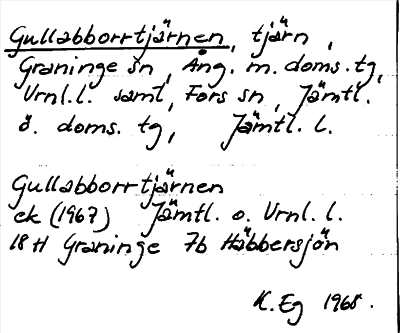 Gullabborrtjärnen, tjärn,
Graninge sn, Ång. m. doms. tg,
Vrnl.l. samt, Fors sn, Jämtl.
ö. doms. tg, Jämtl. l.
Gullabborrtjärnen
ek (1967) Jämtl. o. Vrnl. l.
18 H Graninge 7b Häbbersjön
K. Eg 1968.